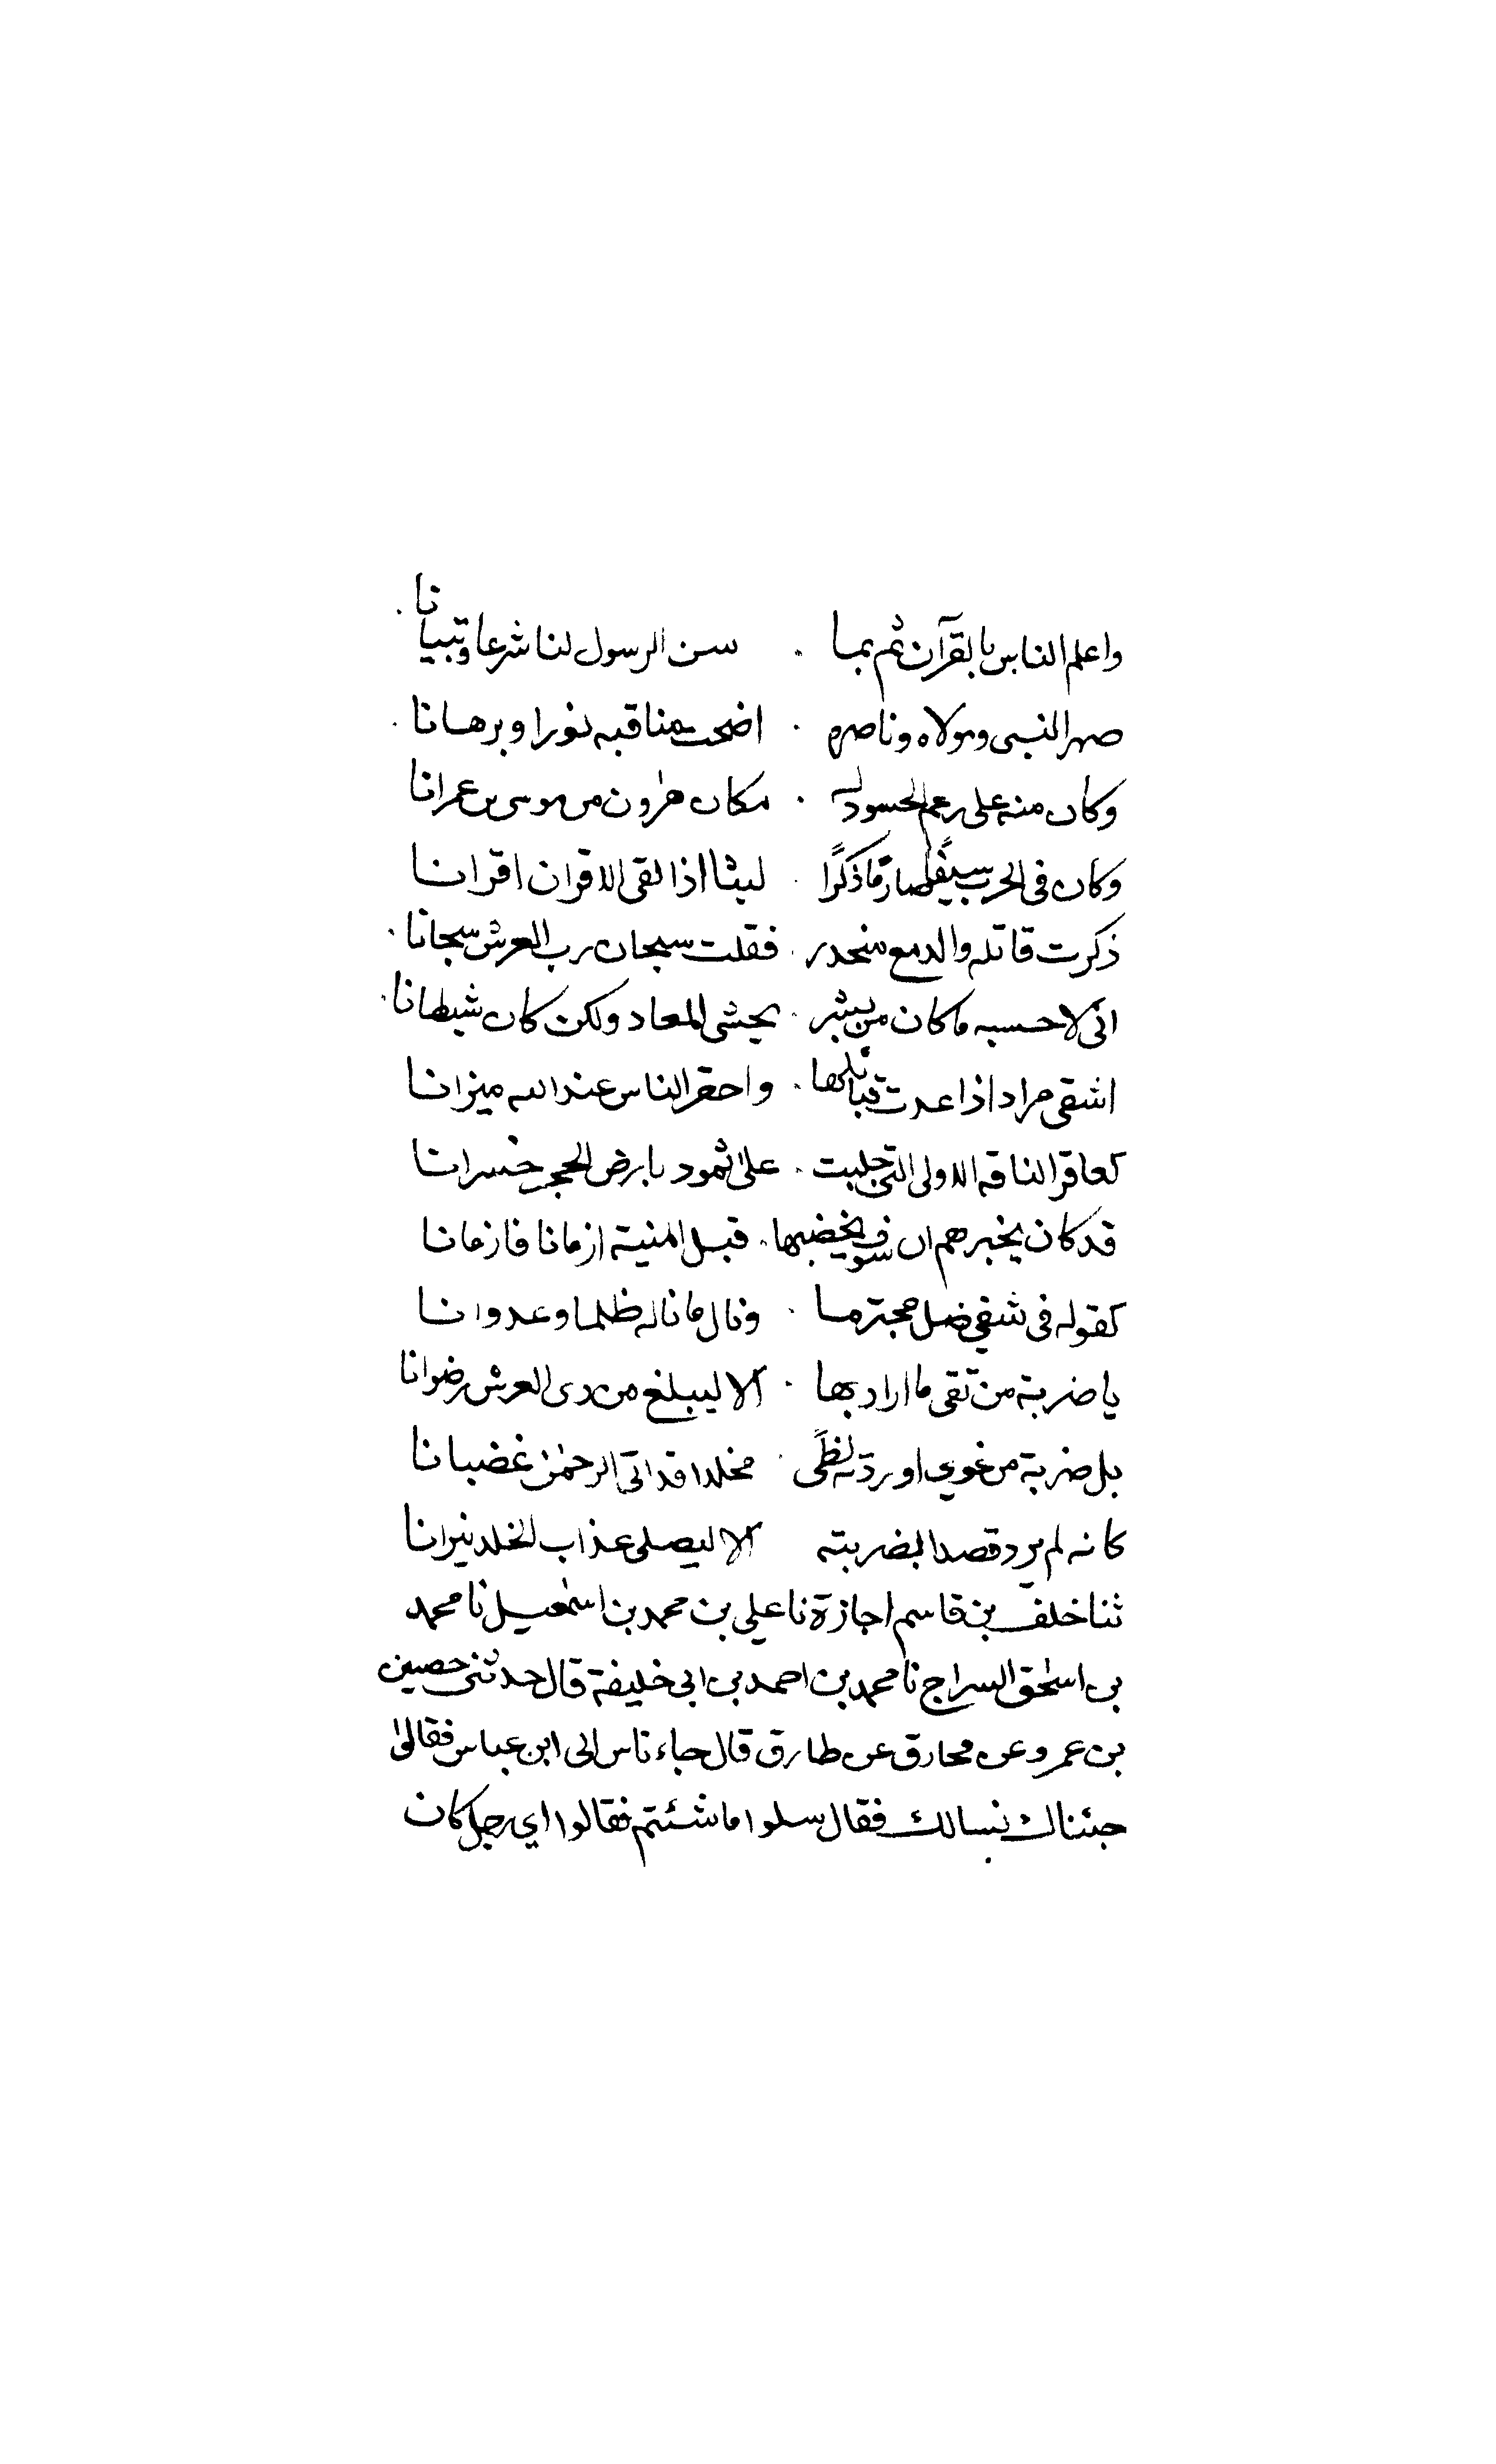 واعلم الناس بالقرآن ثم بما . سن الرسول لنا شرعا وتبيانا .
صهر النبي ومولاه وناصره . اضحت مناقبه نورا وبرهانا .
وكان منه على رغم الحسود له . مكان هٰرون من موسى بن عمرانا
وكان فى الحرب سيفًا صارمًا ذكرًا . ليثا اذا لقى الاقران اقرانا
ذكرت قاتله والدمع منحدر . فقلت سبحان رب العرش سبحانا .
انى لاحسبه ما كان من بشر . يخشى المعاد ولكن كان شيطانا .
اشقى مراد اذا عدت قبائلها . واحقر الناس عند الله ميزانا
كعاقر الناقه الاولى التى جلبت . على ثمود بارض الحجر خسرانا
قد كان يخبرهم ان سوف يخضبها . قبل المنية ازمانا فازمانا
كقوله فى شقي ضل مجترما . ونال ما ناله ظلما وعدوانا
يا ضربة من تقى ما اراد بها . الا ليبلغ من ذى العرش رضوانا
بل ضربة من غوي اوردته لظًى . مخلدا قد اتى الرحمٰن غضبانا
كانه لم يرد قصدا بضربته الا ليصلى عذاب الخلد نيرانا
ثنا خلف بن قاسم اجازة نا علي بن محمد بن اسمٰعيل نا محمد
بن اسحٰق السراج نا محمد بن احمد بن ابى خليفة قال حدثنى حصين
بن عمر وعن مخارق عن طارق قال جاء ناس الى ابن عباس فقالوا
جئناك نسالك فقال سلوا ما شئتم فقالوا اي رجل كان